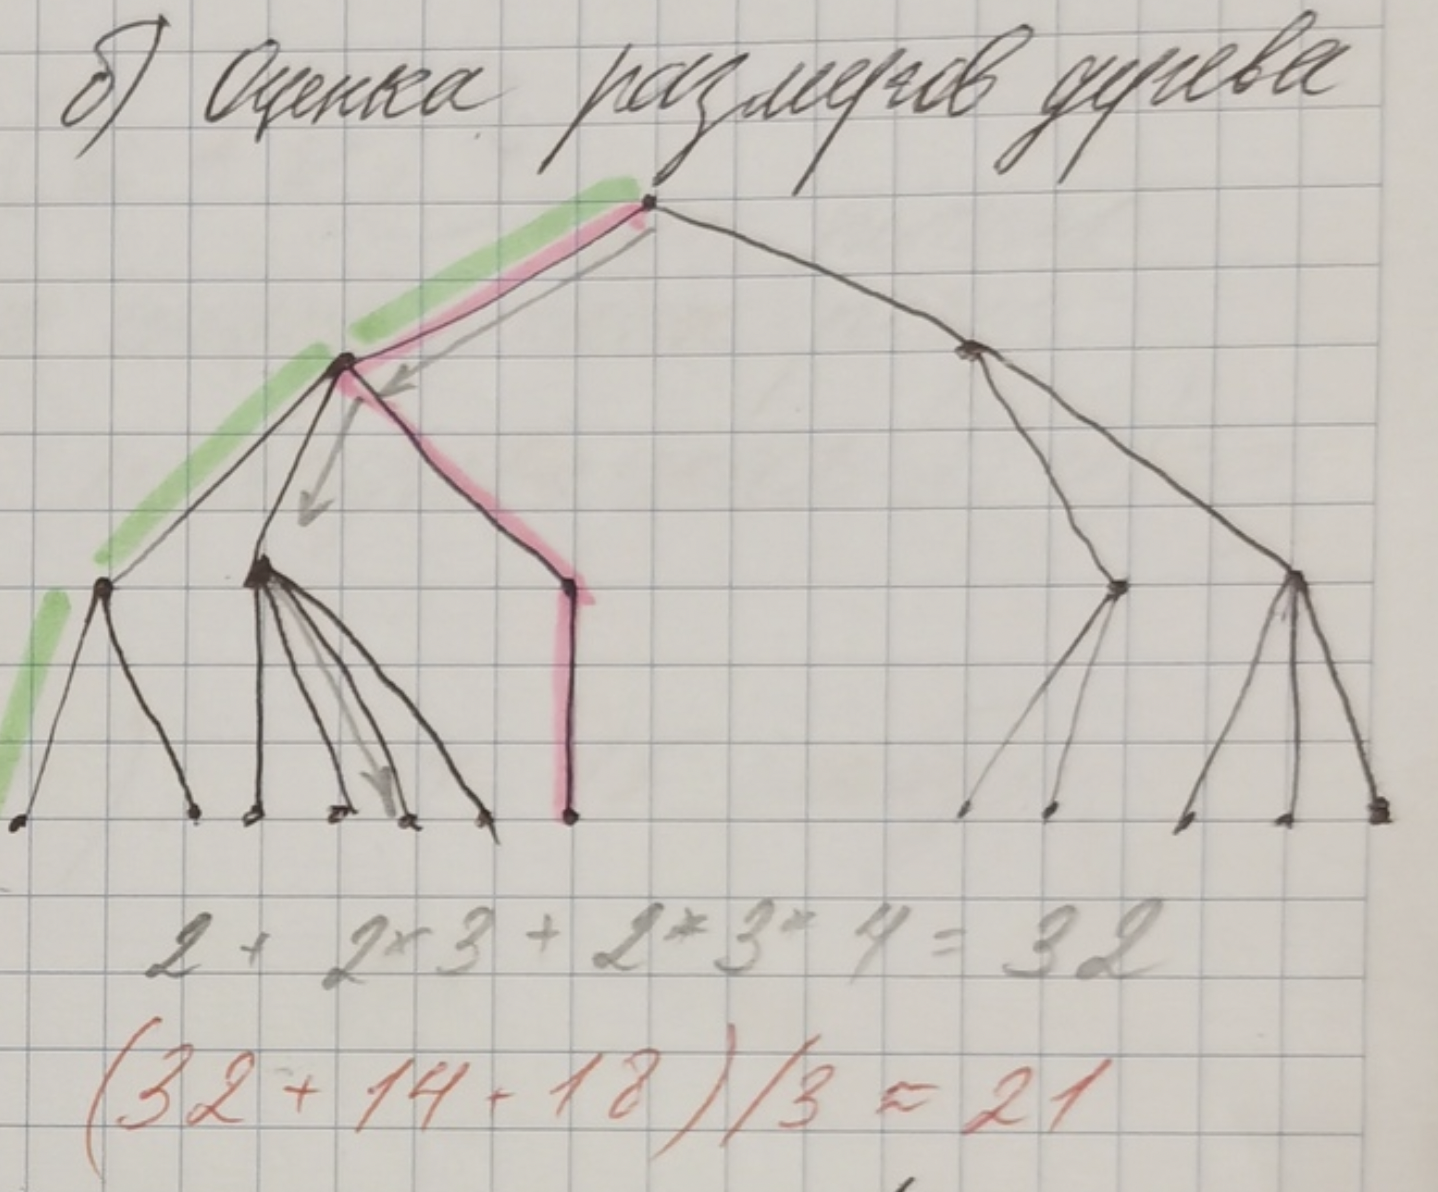 б) Оценка размеров дерева
2 + 2*3 + 2*3*4 = 32
(32 + 14 + 18)/3 ≈ 21